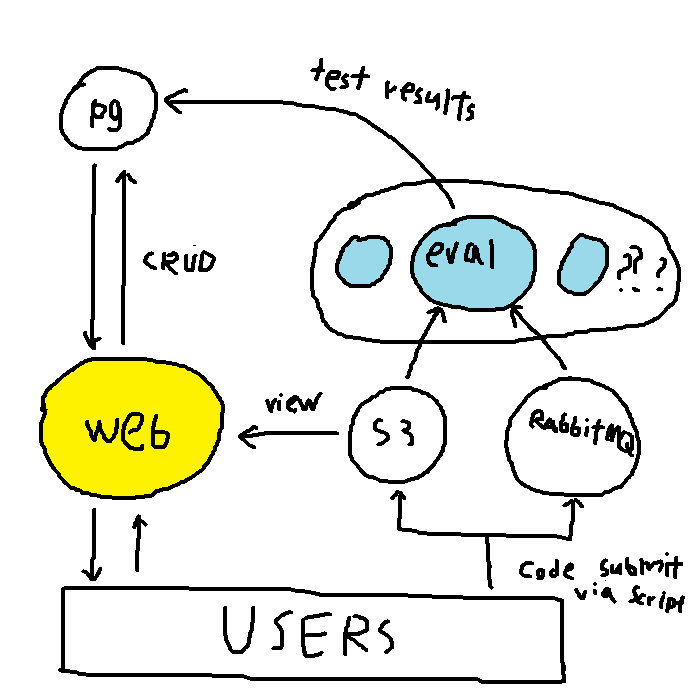 test results
pg
CRUD
eval
??. ?
view
web
S3
RabbitMQ
Code submit
via script
USERS